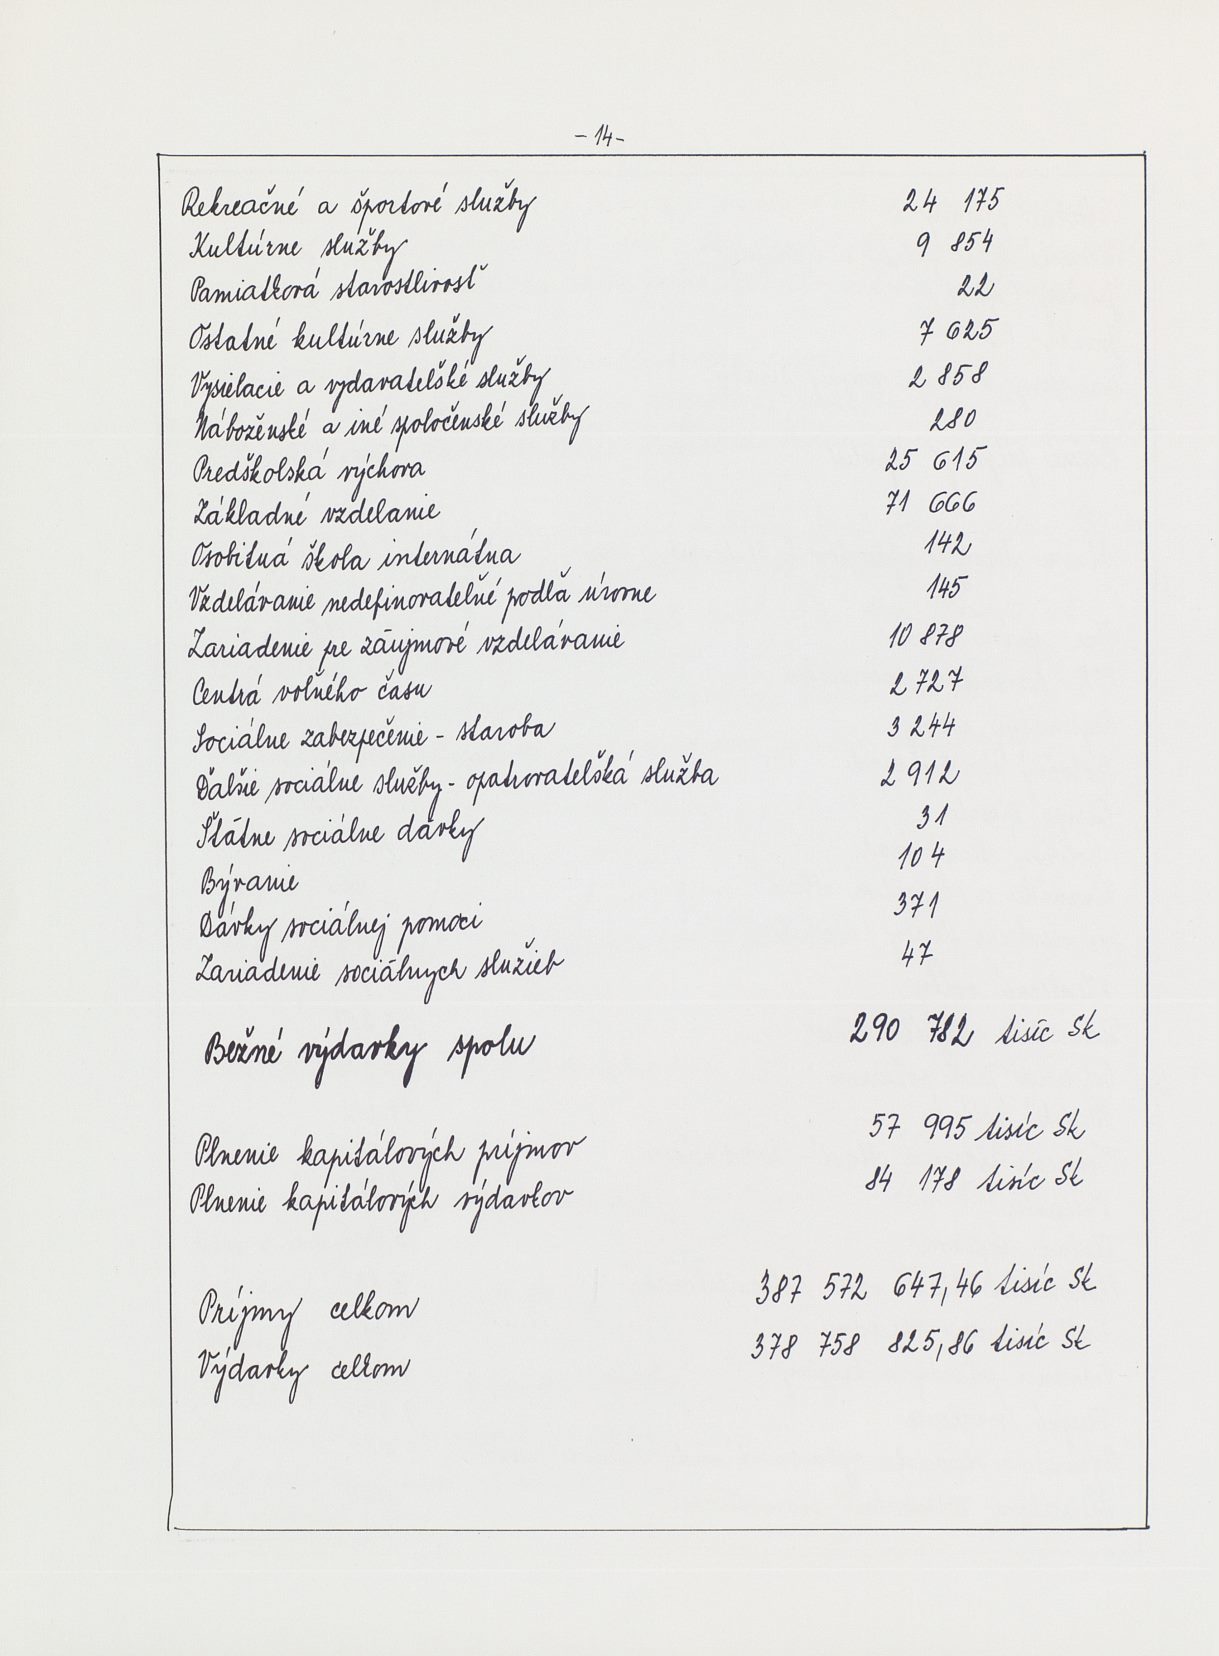 - 14 -
Rekreačné a športové služby 24 175
Kultúrne služby 9 854
Pamiatková starostlivosť 22
Ostatné kultúrne služby 7 625
Vysielacie a vydavateľské služby 2 858
Náboženské a iné spoločenské služby 280
Predškolská výchova 25 615
Základné vzdelanie 71 666
Osobitná škola internátna 142
Vzdelávanie nedefinovateľné podľa úrovne 145
Zariadenie pre záujmové vzdelávanie 10 878
Centrá voľného času 2 727
Sociálne zabezpečenie - staroba 3 244
Ďalšie sociálne služby - opatrovateľská služba 2 912
Štátne sociálne dávky 31
Bývanie 104
Dávky sociálnej pomoci 371
Zariadenie sociálnych služieb 47
Bežné výdavky spolu 290 782 tisíc Sk
Plnenie kapitálových príjmov 57 995 tisíc Sk
Plnenie kapitálových výdavkov 84 178 tisíc Sk
Príjmy celkom 387 572 647,46 tisíc Sk
Výdavky celkom 378 758 825,86 tisíc Sk